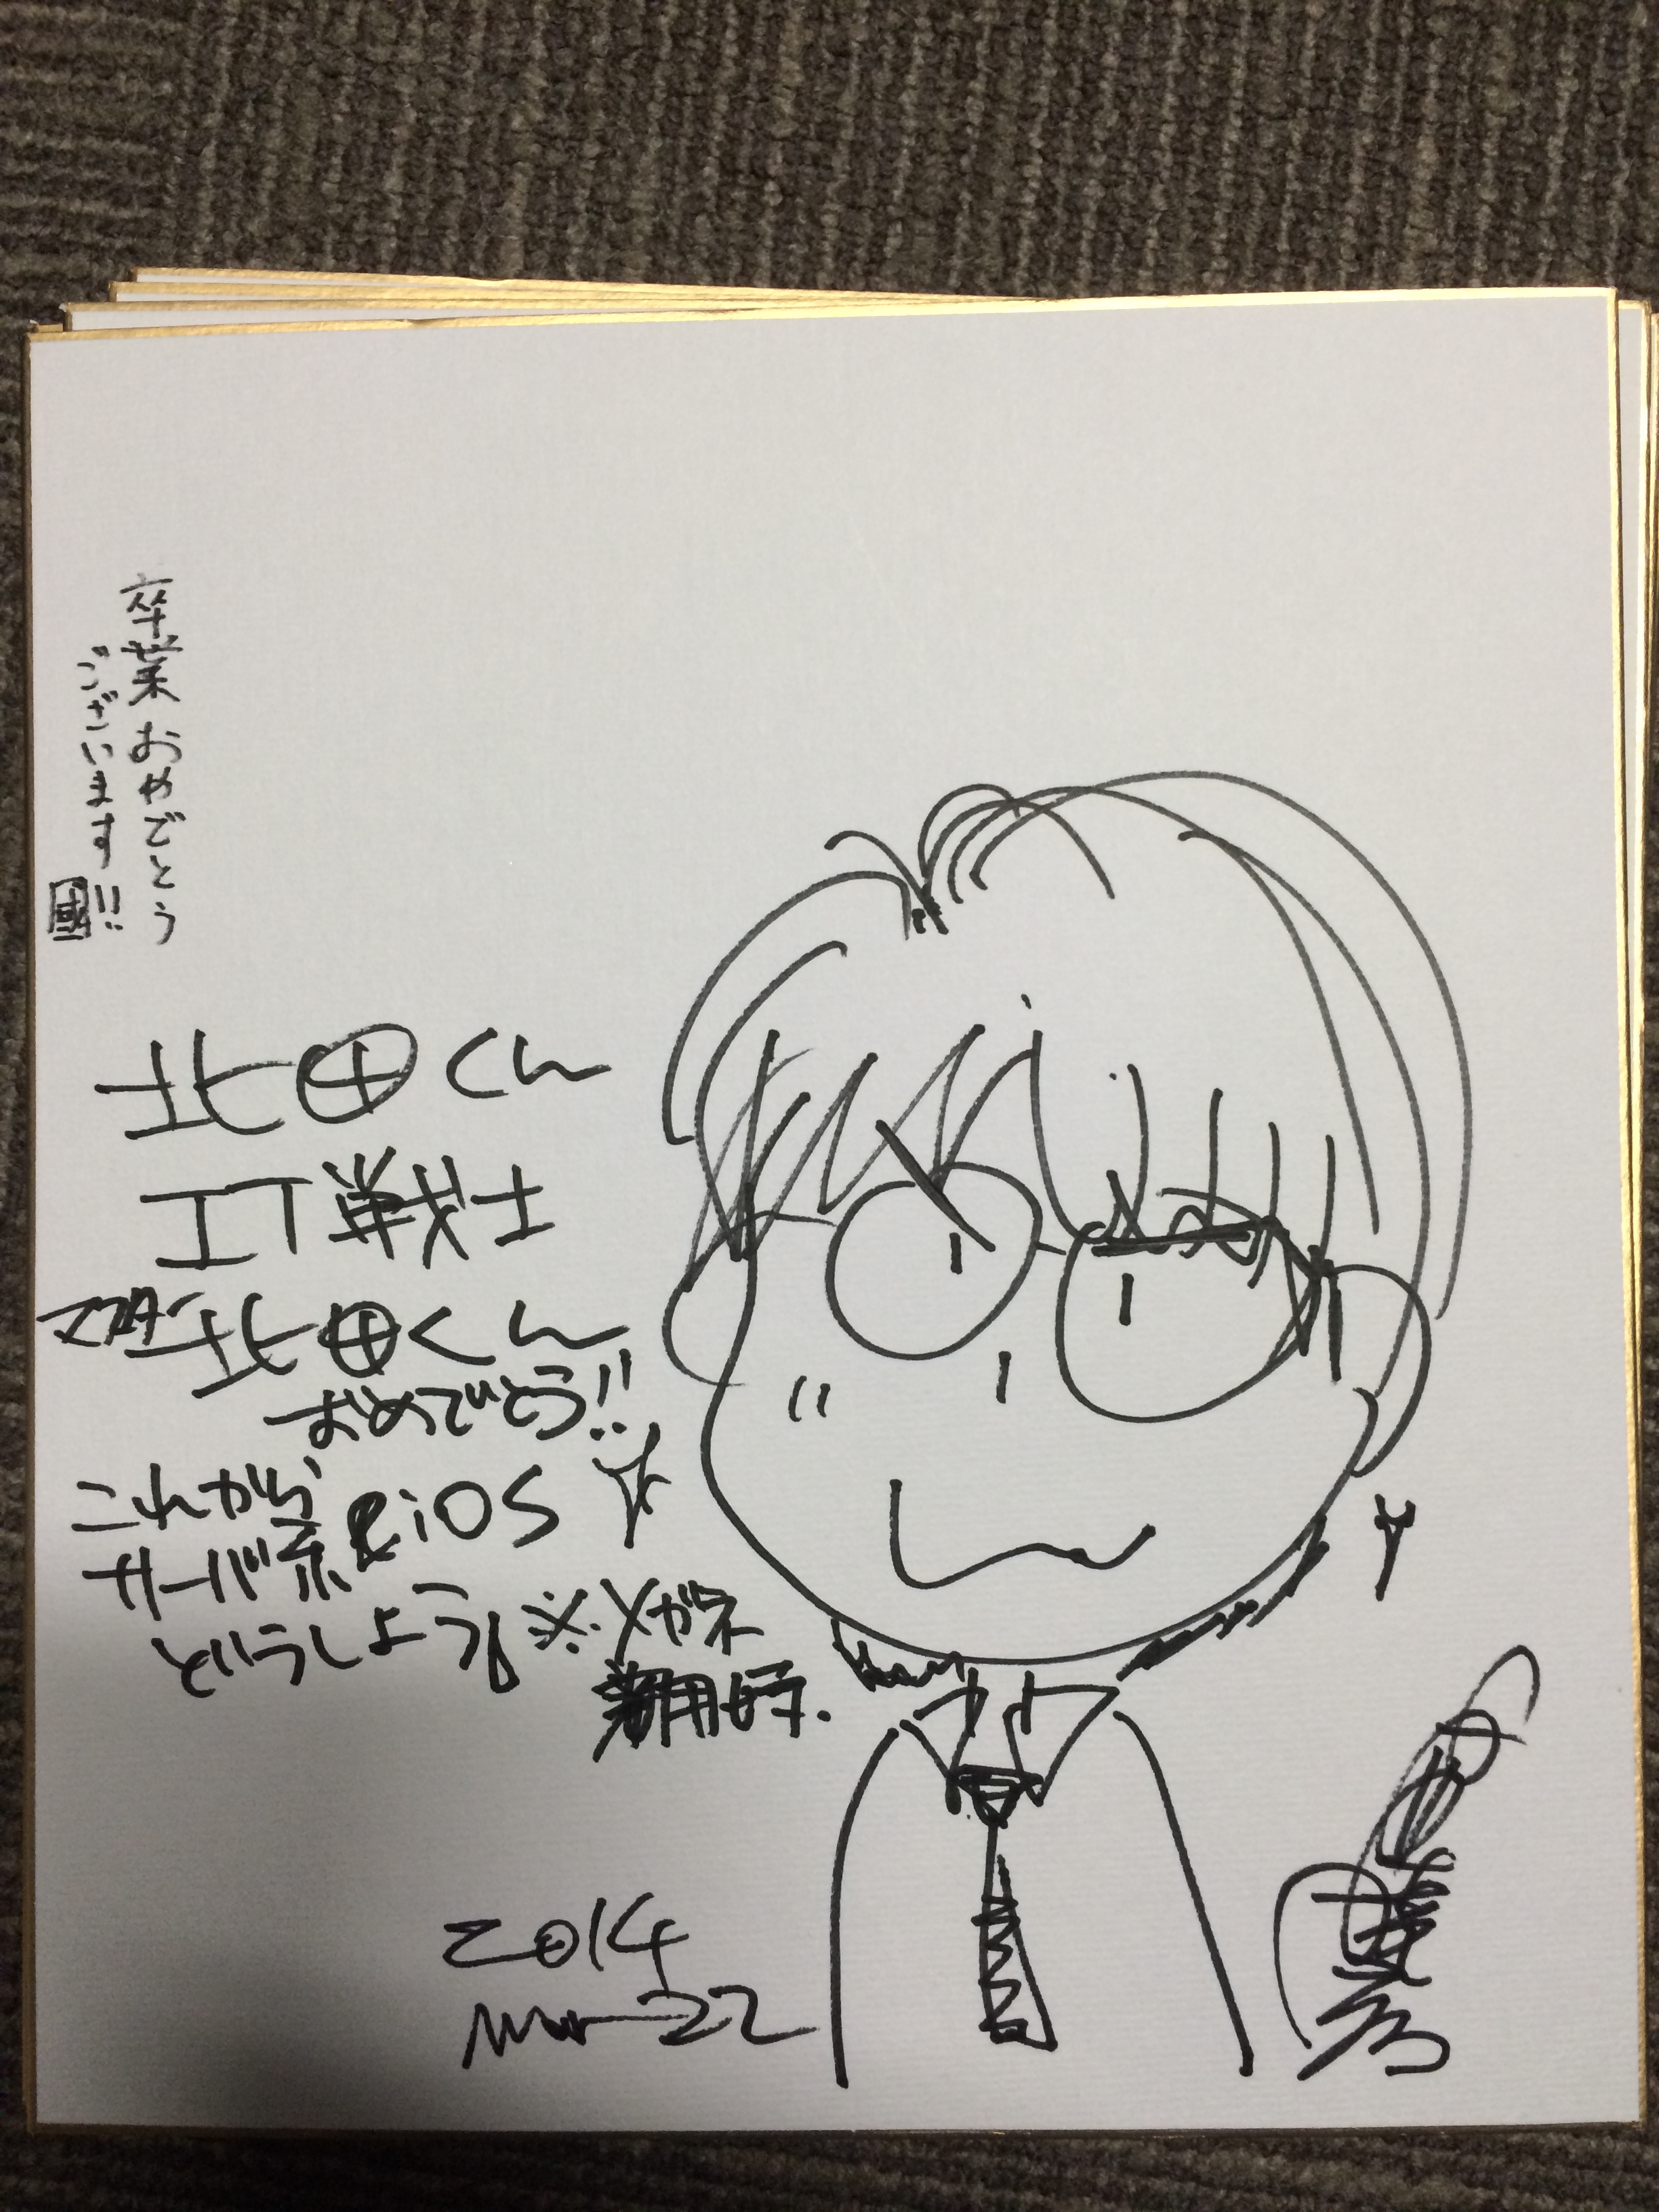 卒業おめでとう
ございます!!
北田くん
IT戦士
マスター北田くん
おめでとう!!
これから
サーバ系とiOS
どうしよう
※メガネ
着用時.
2014
Mar 22